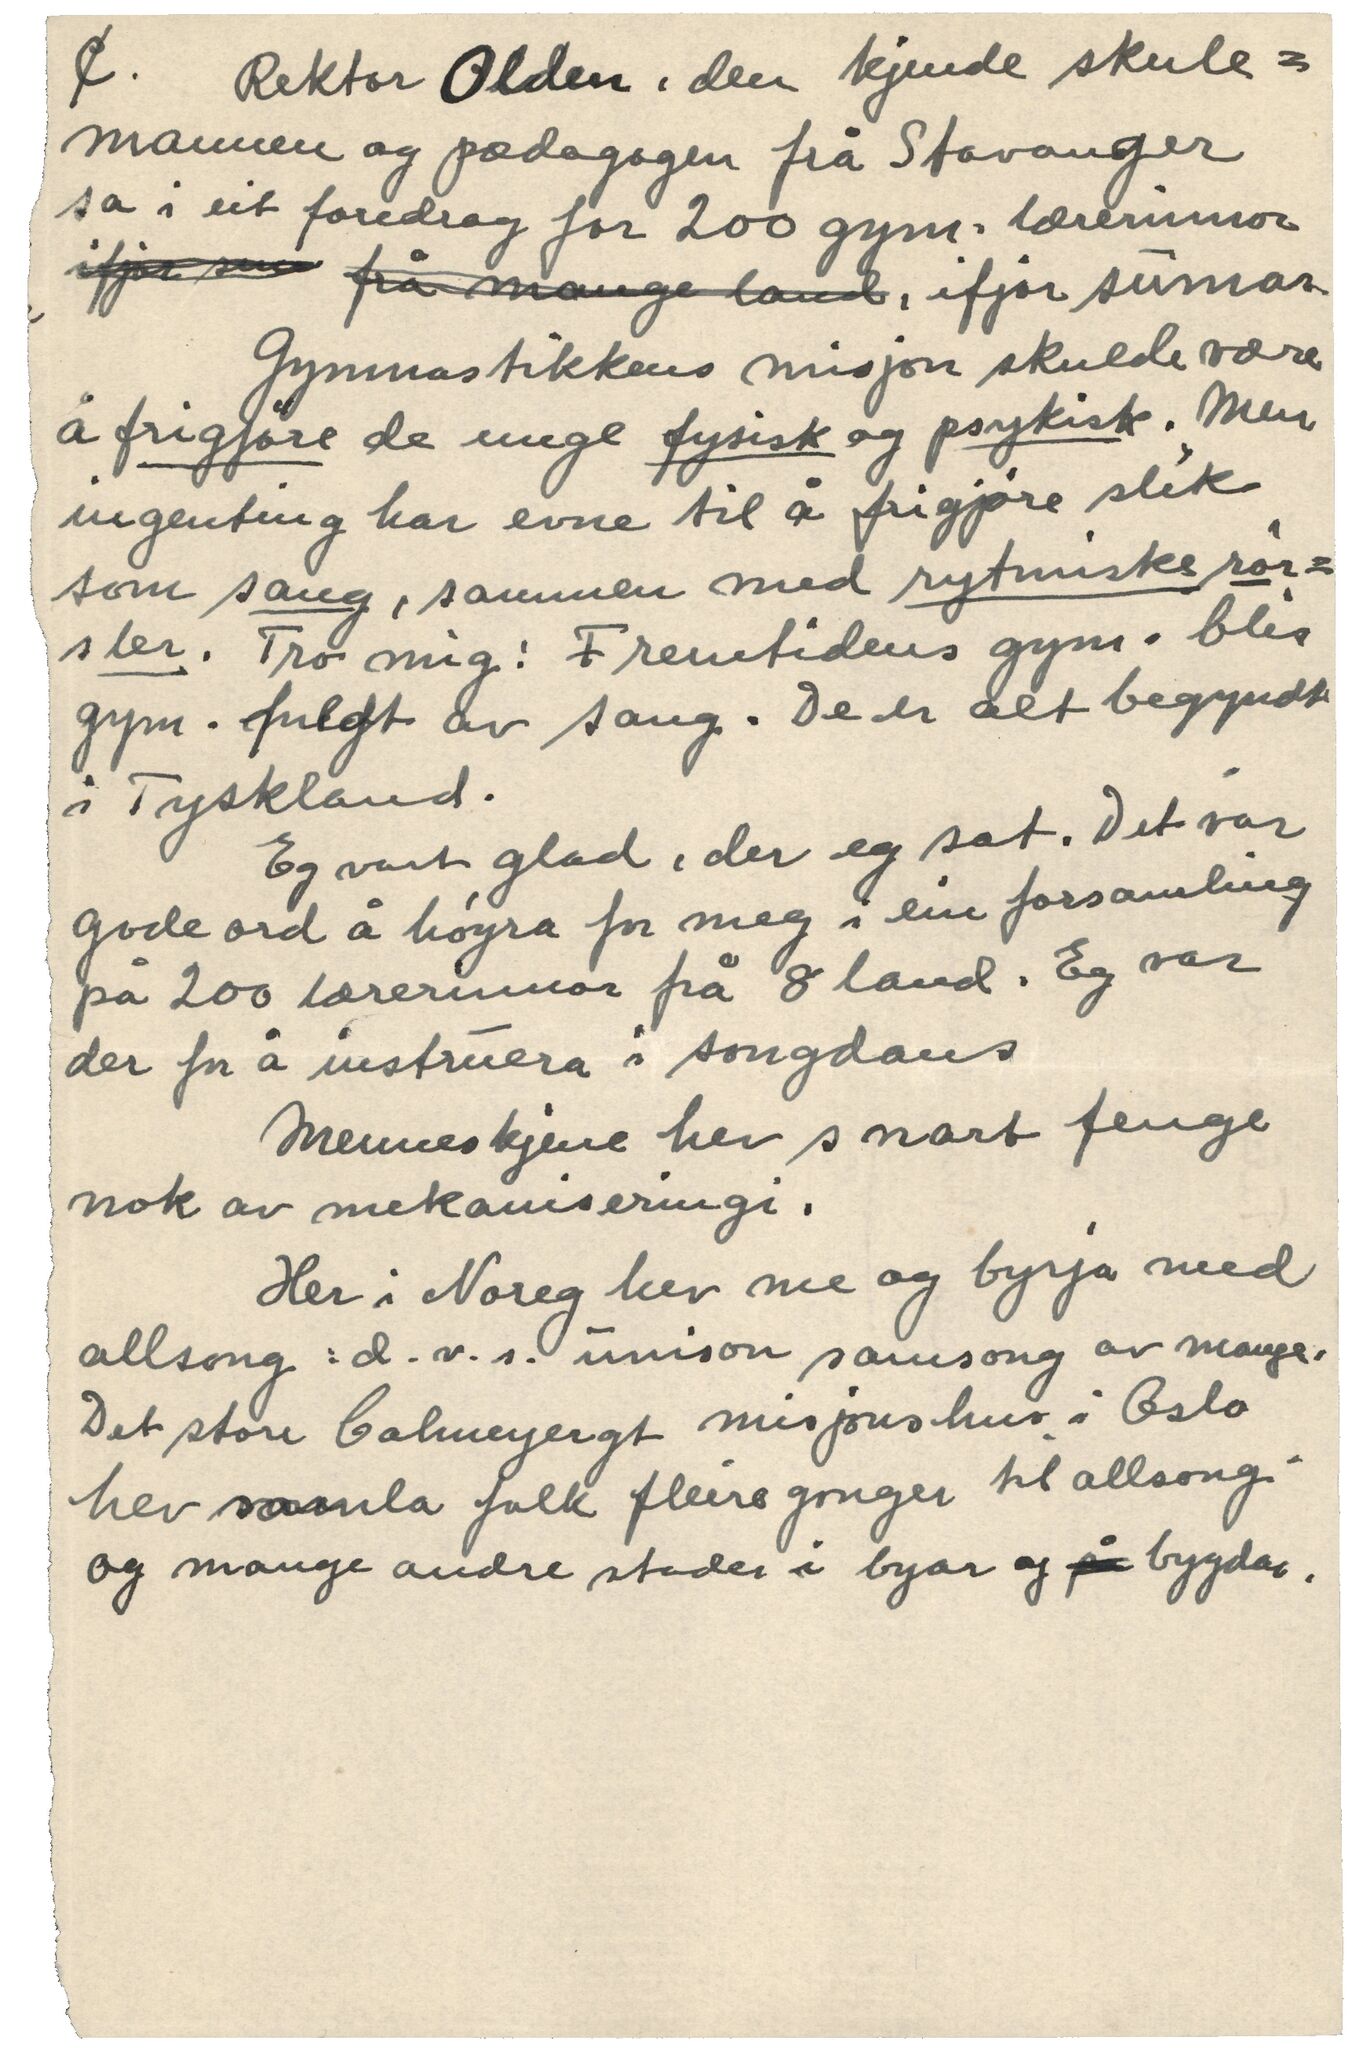 ₵. Rektor Olden, den kjende skule=
mannen og pædagogen frå Stavanger
sa i eit foredrag for 200 gym. lærerinnor
ifjor sum frå mange land, ifjor sumar.
Gymnastikkens misjon skulde være
å frigjøre de unge fysisk og psykisk. Men
ingenting har evne til å frigjøre slik
som sang, sammen med rytmiske rör=
sler. Tro mig: Fremtidens gym. blir
gym. fuldt av sang. De er alt begyndt
i Tyskland.
Eg vart glad, der eg sat. Det var
gode ord å höyra for meg i ein forsamling
på 200 lærerinnor frå 8 land. Eg var
der for å instruera i songdans
Menneskjene hev snart fenge
nok av mekaniseringi.
Her i Noreg hev me og byrja med
allsong: d.v.s. unison samsong av mange.
Det store Calmeyergt misjonshus i Oslo
hev samla folk fleire gonger til allsong
og mange andre stader i byar og på bygdar.